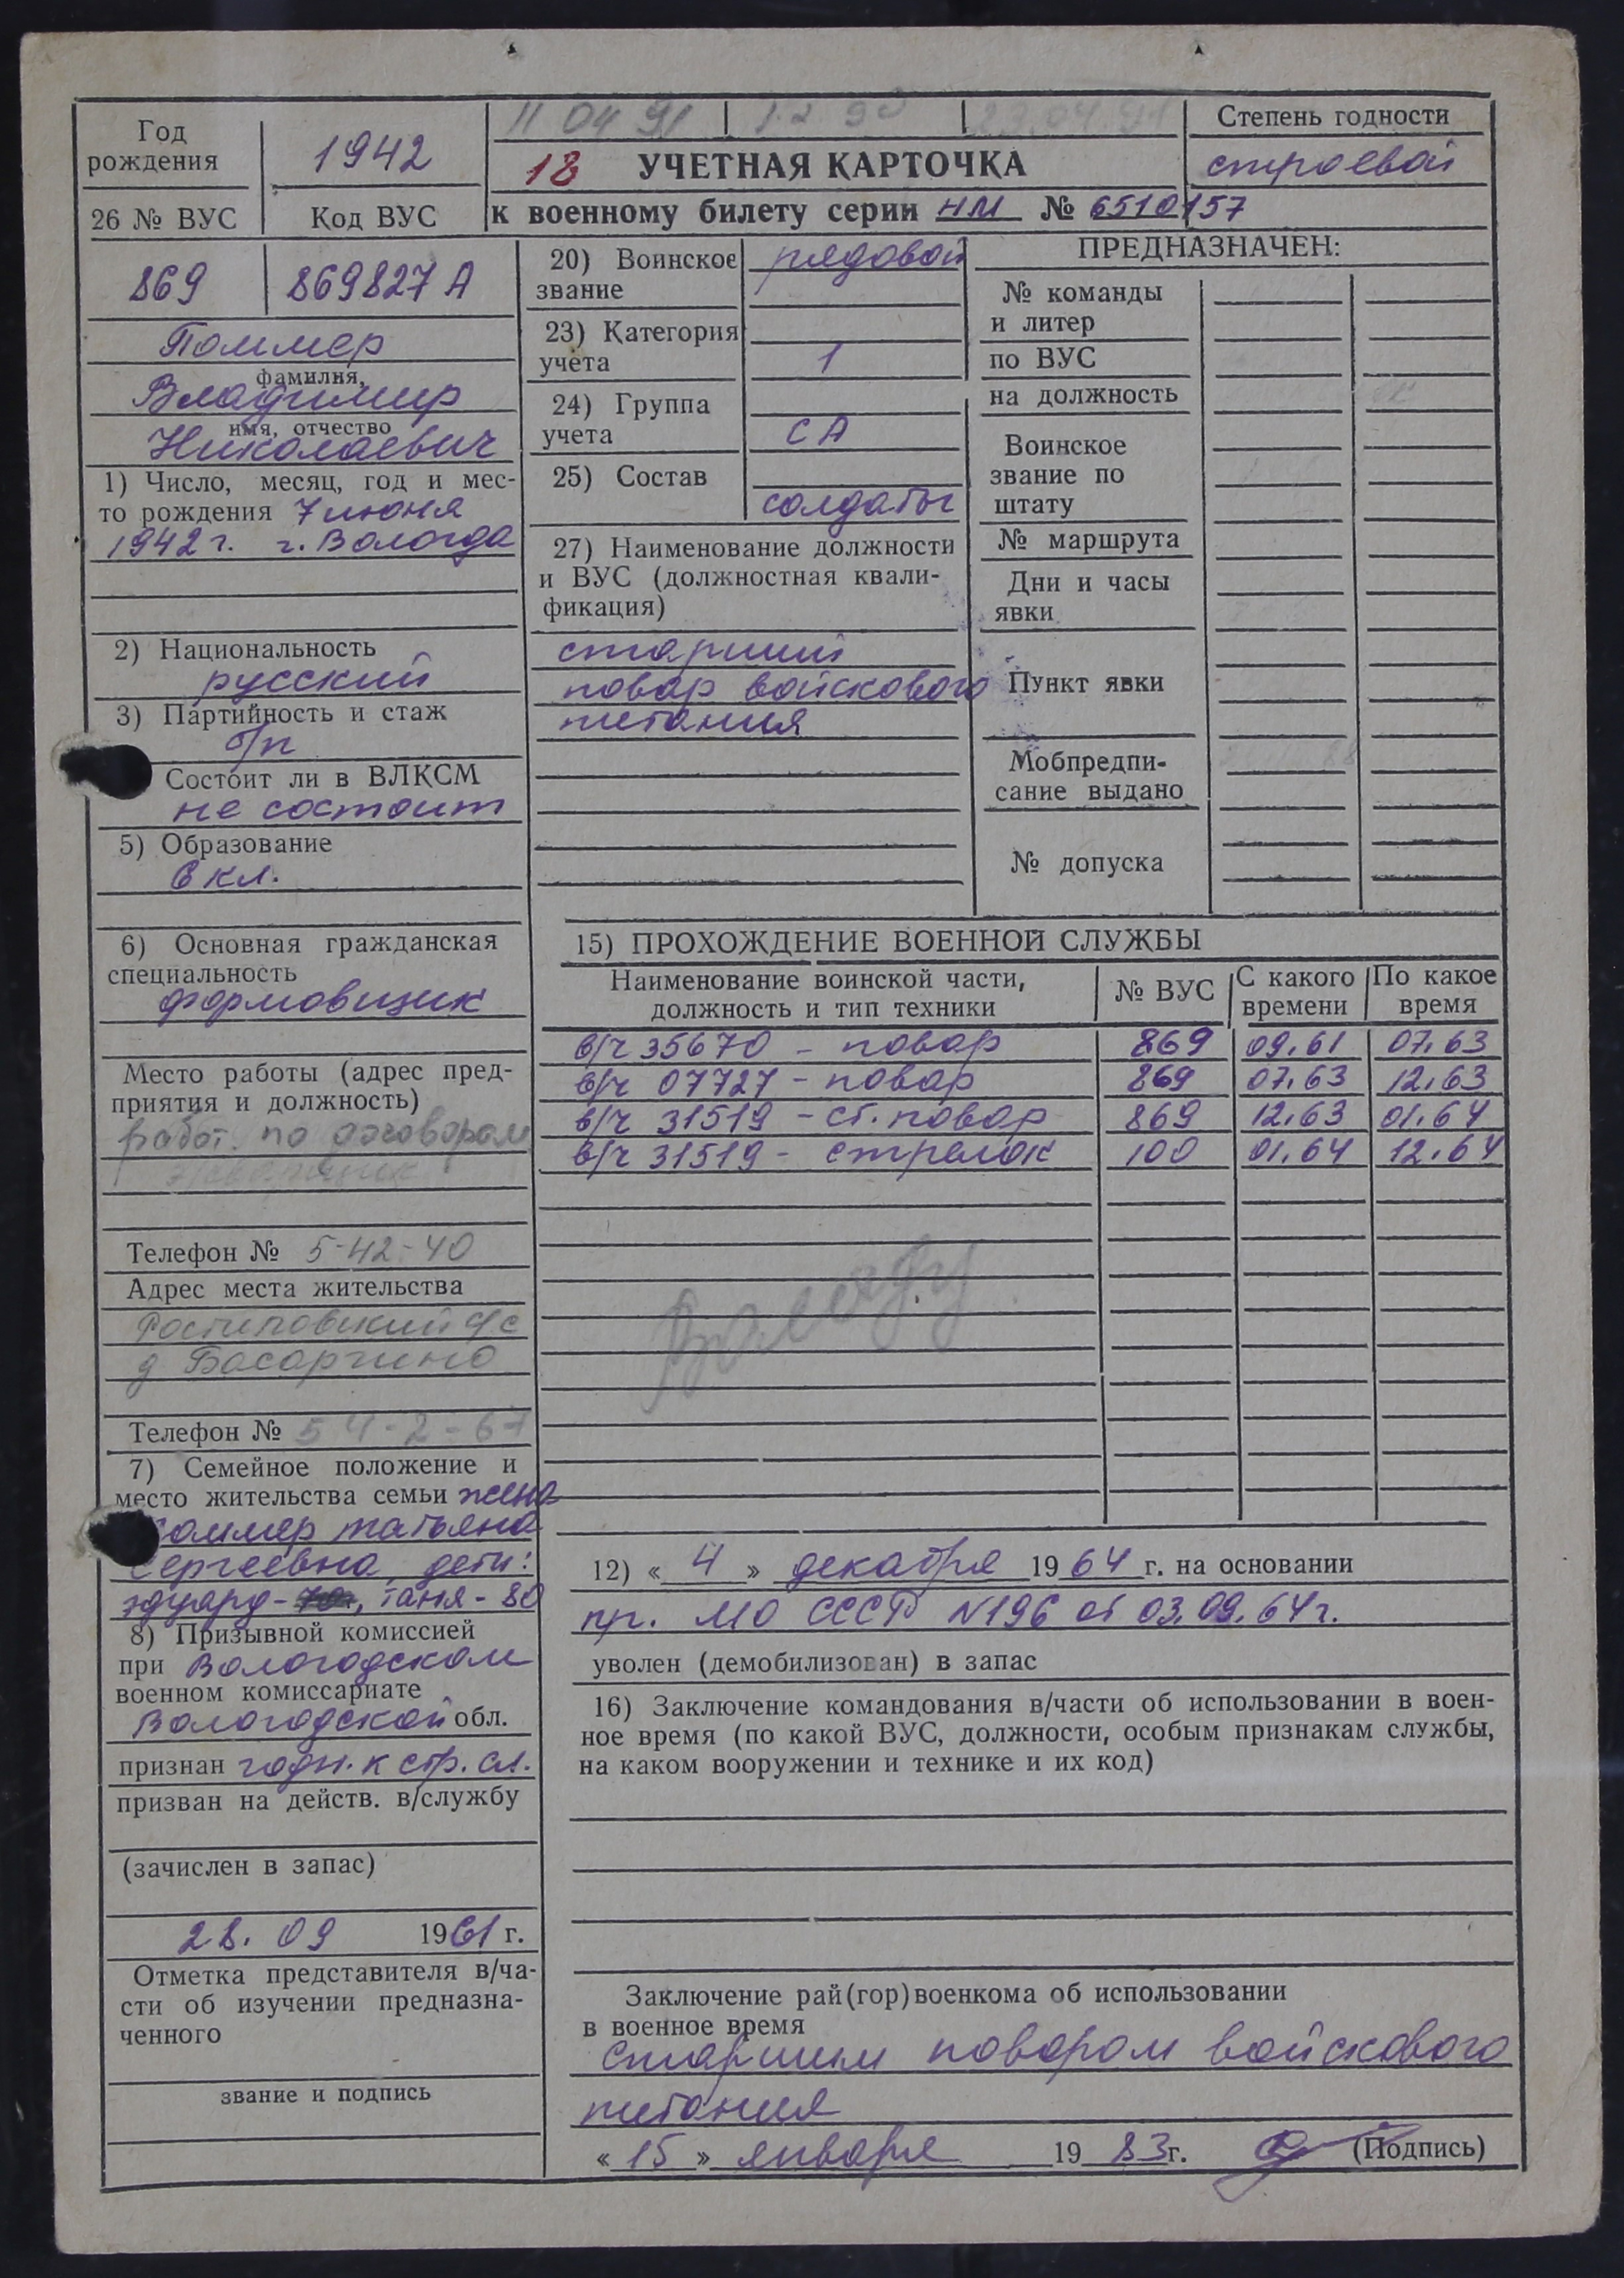 11 04 91
Степень годности
Год
рождения
1942
18 УЧЕТНАЯ КАРТОЧКА
строевой
26 № ВУС
Код ВУС
к военному билету серии НМ № 6510157
869
869827 А
Поммер
фамилия,
Владимир
имя, отчество
Николаевич
1) Число, месяц, год и мес-
то рождения 7 июня
1942 г. г. Вологда
2) Национальность
русский
3) Партийность и стаж
б/п
Состоит ли в ВЛКСМ
не состоит
5) Образование
6 кл.
6) Основная гражданская
специальность
формовщик
Место работы (адрес пред-
приятия и должность)
работ. по договорам
Телефон № 5-42-40
Адрес места жительства
с/с
д Басаргино
Телефон № 54-2-67
7) Семейное положение и
место жительства семьи жена
Поммер Татьяна
Сергеевна, дети:
Эдуард- , Таня-80
8) Призывной комиссией
при Вологодском
военном комиссариате
Вологодской обл.
признан годн. к стр. сл.
призван на действ. в/службу
(зачислен в запас)
28. 09 1961 г.
Отметка представителя в/ча-
сти об изучении предназна-
ченного
звание и подпись
20) Воинское
звание
рядовой
23) Категория
учета
1
24) Группа
учета
СА
25) Состав
солдаты
27) Наименование должности
и ВУС (должностная квали-
фикация)
старший
повар войскового
питания
ПРЕДНАЗНАЧЕН:
№ команды
и литер
по ВУС
на должность
Воинское
звание по
штату
№ маршрута
Дни и часы
явки
Пункт явки
Мобпредпи-
сание выдано
№ допуска
15) ПРОХОЖДЕНИЕ ВОЕННОЙ СЛУЖБЫ
Наименование воинской части,
должность и тип техники
№ ВУС
С какого
времени
По какое
время
в/ч 35670 - повар 869 09.61 07.63
в/ч 07727 - повар 869 07.63 12.63
в/ч 31519 - ст. повар 869 12.63 01.64
в/ч 31519 - стрелок 100 01.64 12.64
12) « 4 » декабря 1964 г. на основании
пр. МО СССР N196 от 03.09.64 г.
уволен (демобилизован) в запас
16) Заключение командования в/части об использовании в воен-
ное время (по какой ВУС, должности, особым признакам службы,
на каком вооружении и технике и их код)
Заключение рай(гор)военкома об использовании
в военное время
старшим поваром войскового
питания
« 15 » января 1983 г. (Подпись)